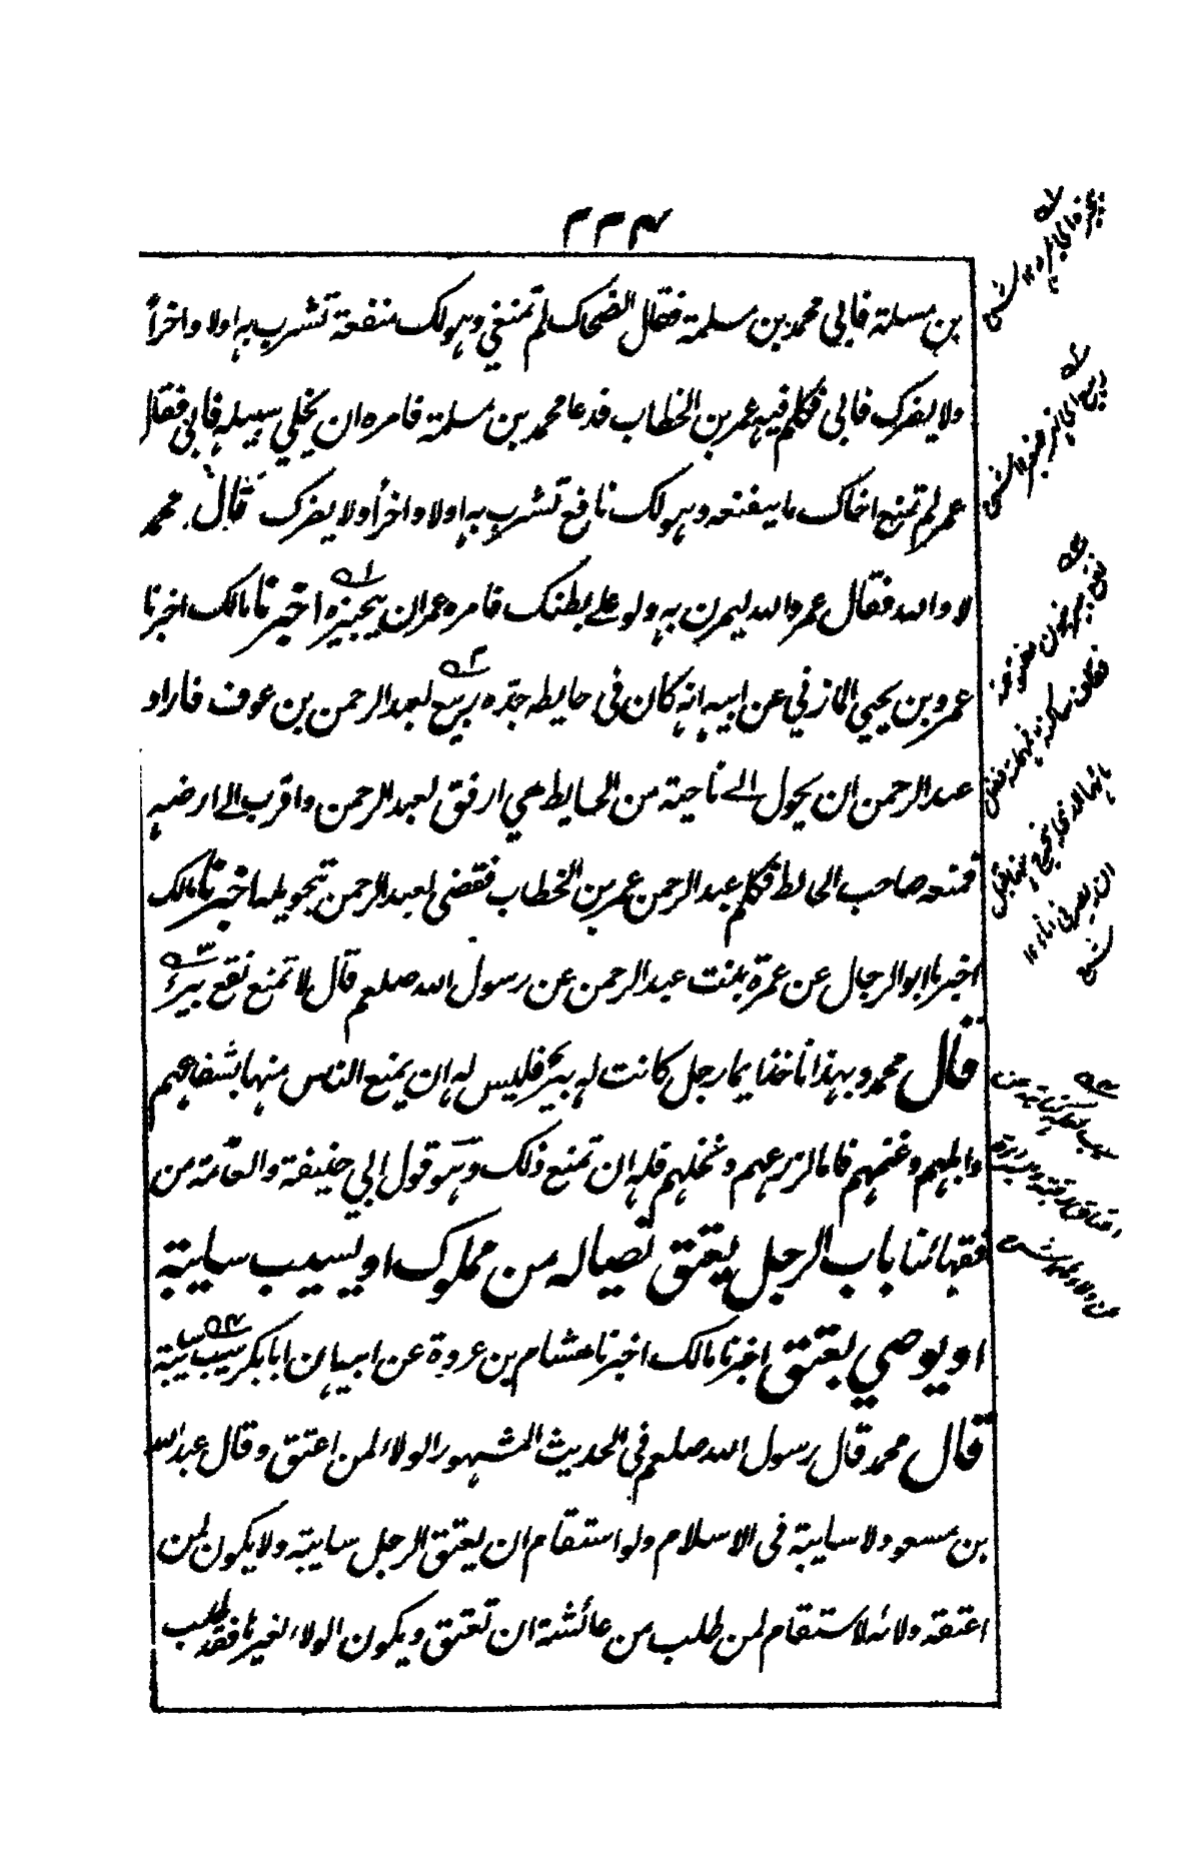 ٣٣٤
بن مسلمة فابى محمد بن مسلمة فقال الضحاك لم تمنعني وهو لك منفعة تشرب به اولا واخرأ
ولا يضرك فابى فكلم فيه عمر بن الخطاب فدعا محمد بن مسلمة فامره ان يخلي سبيله فابى فقال
عمر لم تمنع اخاك ما ينفعه وهو لك نافع تشرب به اولا واخرأ ولا يضرك قال محمد
لا والله فقال عمر والله ليمرن به ولو على بطنك فامره عمر ان يجيزه اخبرنا مالك اخبرنا
عمرو بن يحيي المازني عن ابيه انه كان في حايط جده ربيع لعبد الرحمن بن عوف فاراد
عبد الرحمن ان يحول الى ناحية من الحايط هي ارفق لعبد الرحمن واقرب الى ارضه
فمنعه صاحب الحايط فكلم عبد الرحمن عمر بن الخطاب فقضى لعبد الرحمن بتحويله اخبرنا مالك
اخبرنا ابو الرجال عن عمرة بنت عبد الرحمن عن رسول الله صلعم قال لا تمنع نقع بير
قال محمد وبهذا ناخذ ايما رجل كانت له بير فليس له ان يمنع الناس منها بشفاههم
وابلهم وغنمهم فاما لزرعهم ونخلهم فله ان تمنع ذلك وهو قول ابي حنيفة والعامة من
فقهائنا باب الرجل يعتق نصيبا له من مملوك او يسيب سايبة
او يوصي بعتق اخبرنا مالك اخبرنا هشام بن عروة عن ابيه ان ابا بكر سيب سايبة
قال محمد قال رسول الله صلعم في الحديث المشهور الولاء لمن اعتق وقال عبد الله
بن مسعود لا سايبة في الاسلام ولو استقام ان يعتق الرجل سايبة ولا يكون لمن
اعتقه ولائه لاستقام لمن طلب من عائشة ان تعتق ويكون الولاء لغيرها فقد طلب